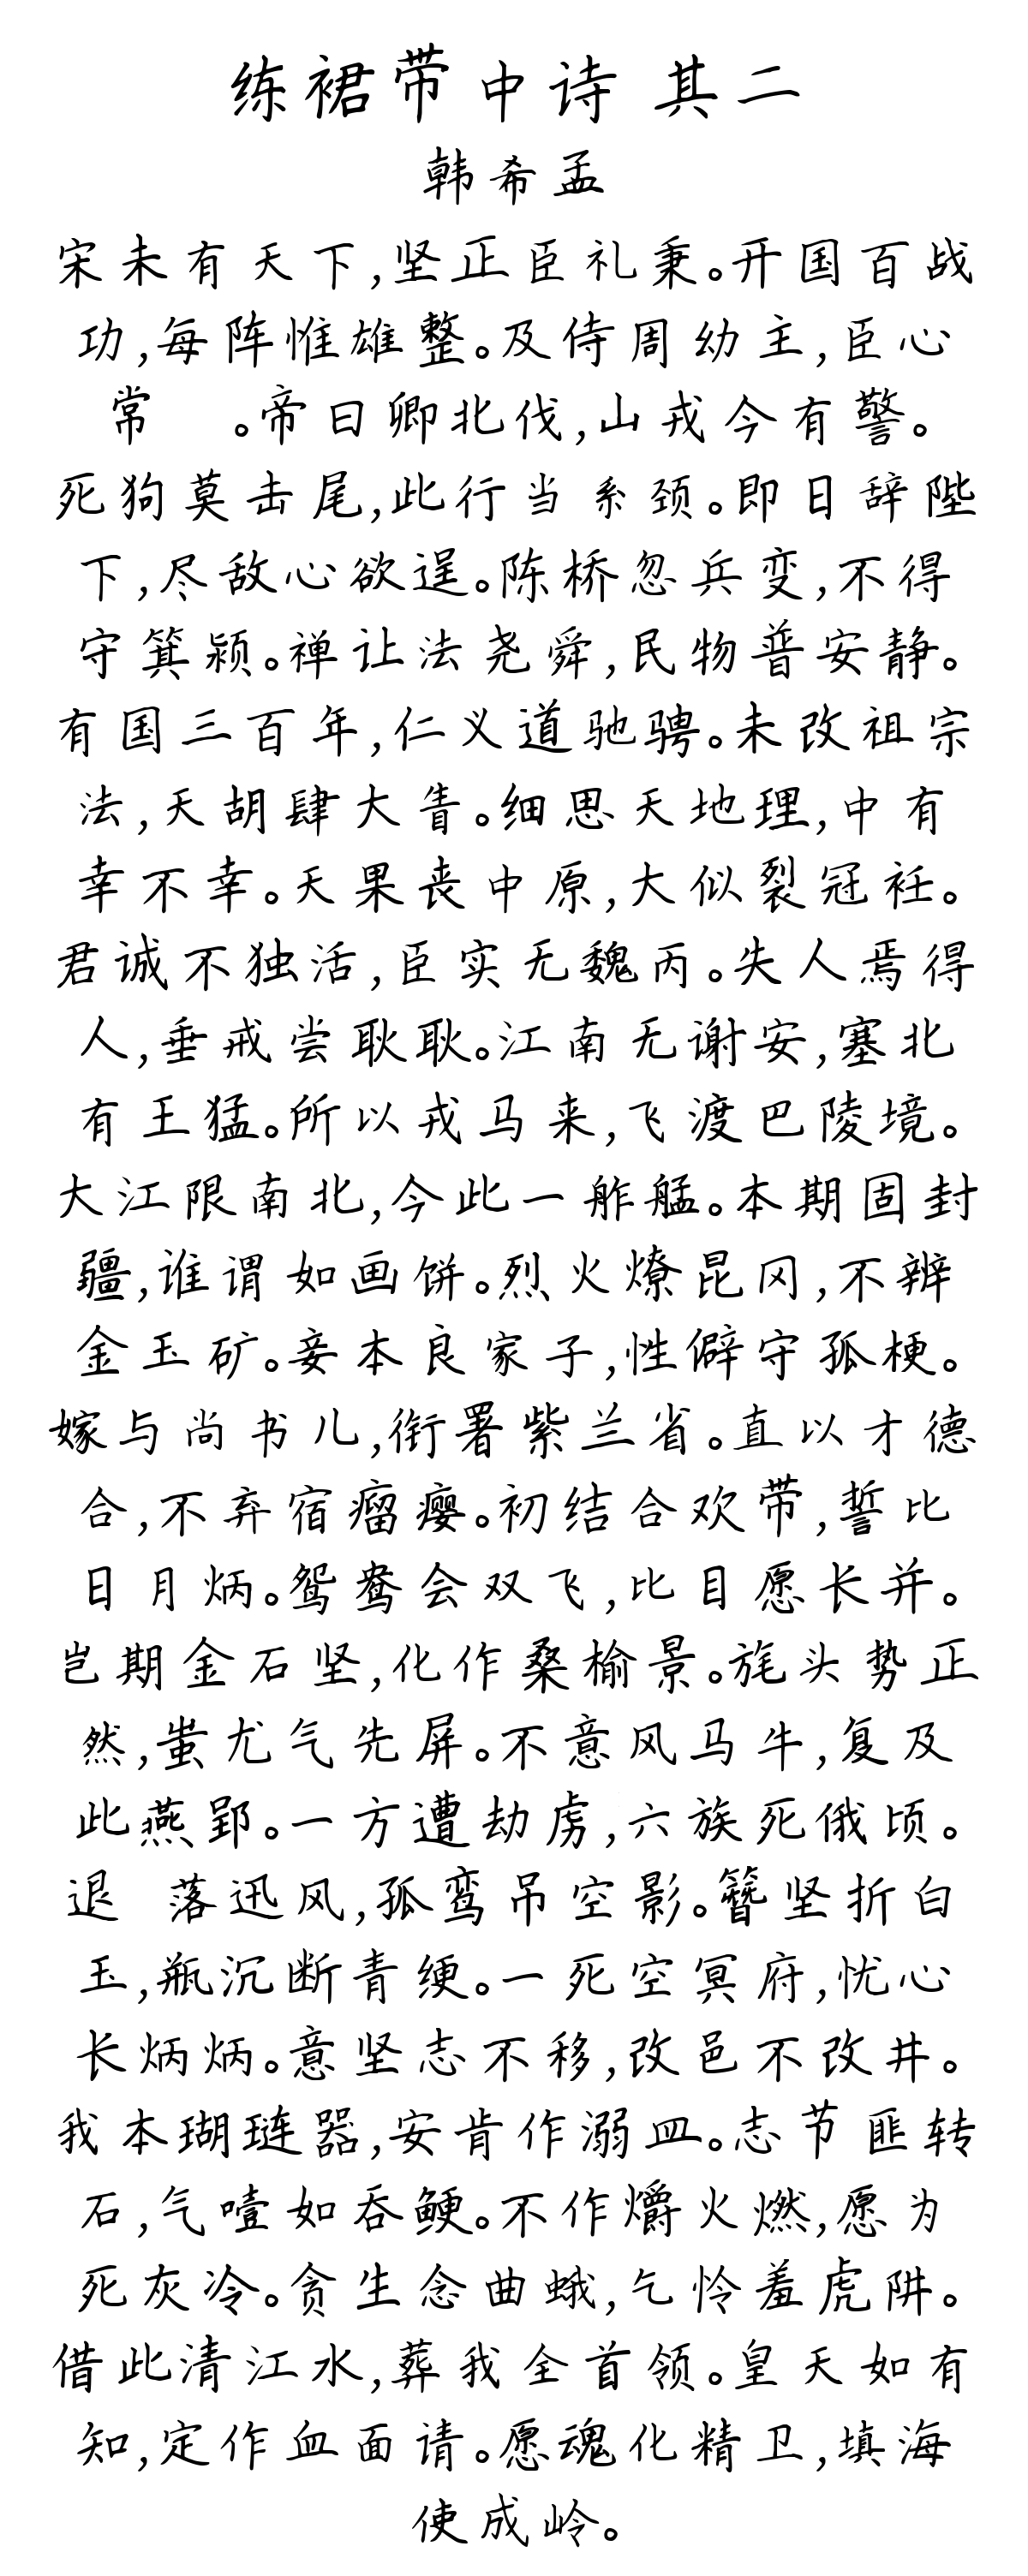 练裙带中诗 其二
韩希孟
宋未有天下,坚正臣礼秉。开国百战
功,每阵惟雄整。及侍周幼主,臣心
常 。帝曰卿北伐,山戎今有警。
死狗莫击尾,此行当系颈。即日辞陛
下,尽敌心欲逞。陈桥忽兵变,不得
守箕颍。禅让法尧舜,民物普安静。
有国三百年,仁义道驰骋。未改祖宗
法,天胡肆大眚。细思天地理,中有
幸不幸。天果丧中原,大似裂冠衽。
君诚不独活,臣实无魏丙。失人焉得
人,垂戒尝耿耿。江南无谢安,塞北
有王猛。所以戎马来,飞渡巴陵境。
大江限南北,今此一舴艋。本期固封
疆,谁谓如画饼。烈火燎昆冈,不辨
金玉矿。妾本良家子,性僻守孤梗。
嫁与尚书儿,衔署紫兰省。直以才德
合,不弃宿瘤瘿。初结合欢带,誓比
日月炳。鸳鸯会双飞,比目愿长并。
岂期金石坚,化作桑榆景。旄头势正
然,蚩尤气先屏。不意风马牛,复及
此燕郢。一方遭劫虏,六族死俄顷。
退 落迅风,孤鸾吊空影。簪坚折白
玉,瓶沉断青绠。一死空冥府,忧心
长炳炳。意坚志不移,改邑不改井。
我本瑚琏器,安肯作溺皿。志节匪转
石,气噎如吞鲠。不作爝火燃,愿为
死灰冷。贪生念曲蛾,乞怜羞虎阱。
借此清江水,葬我全首领。皇天如有
知,定作血面请。愿魂化精卫,填海
使成岭。